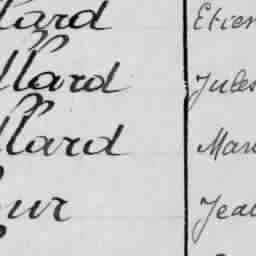 lard Etien
llard Jules
llard Mari
ur Jean